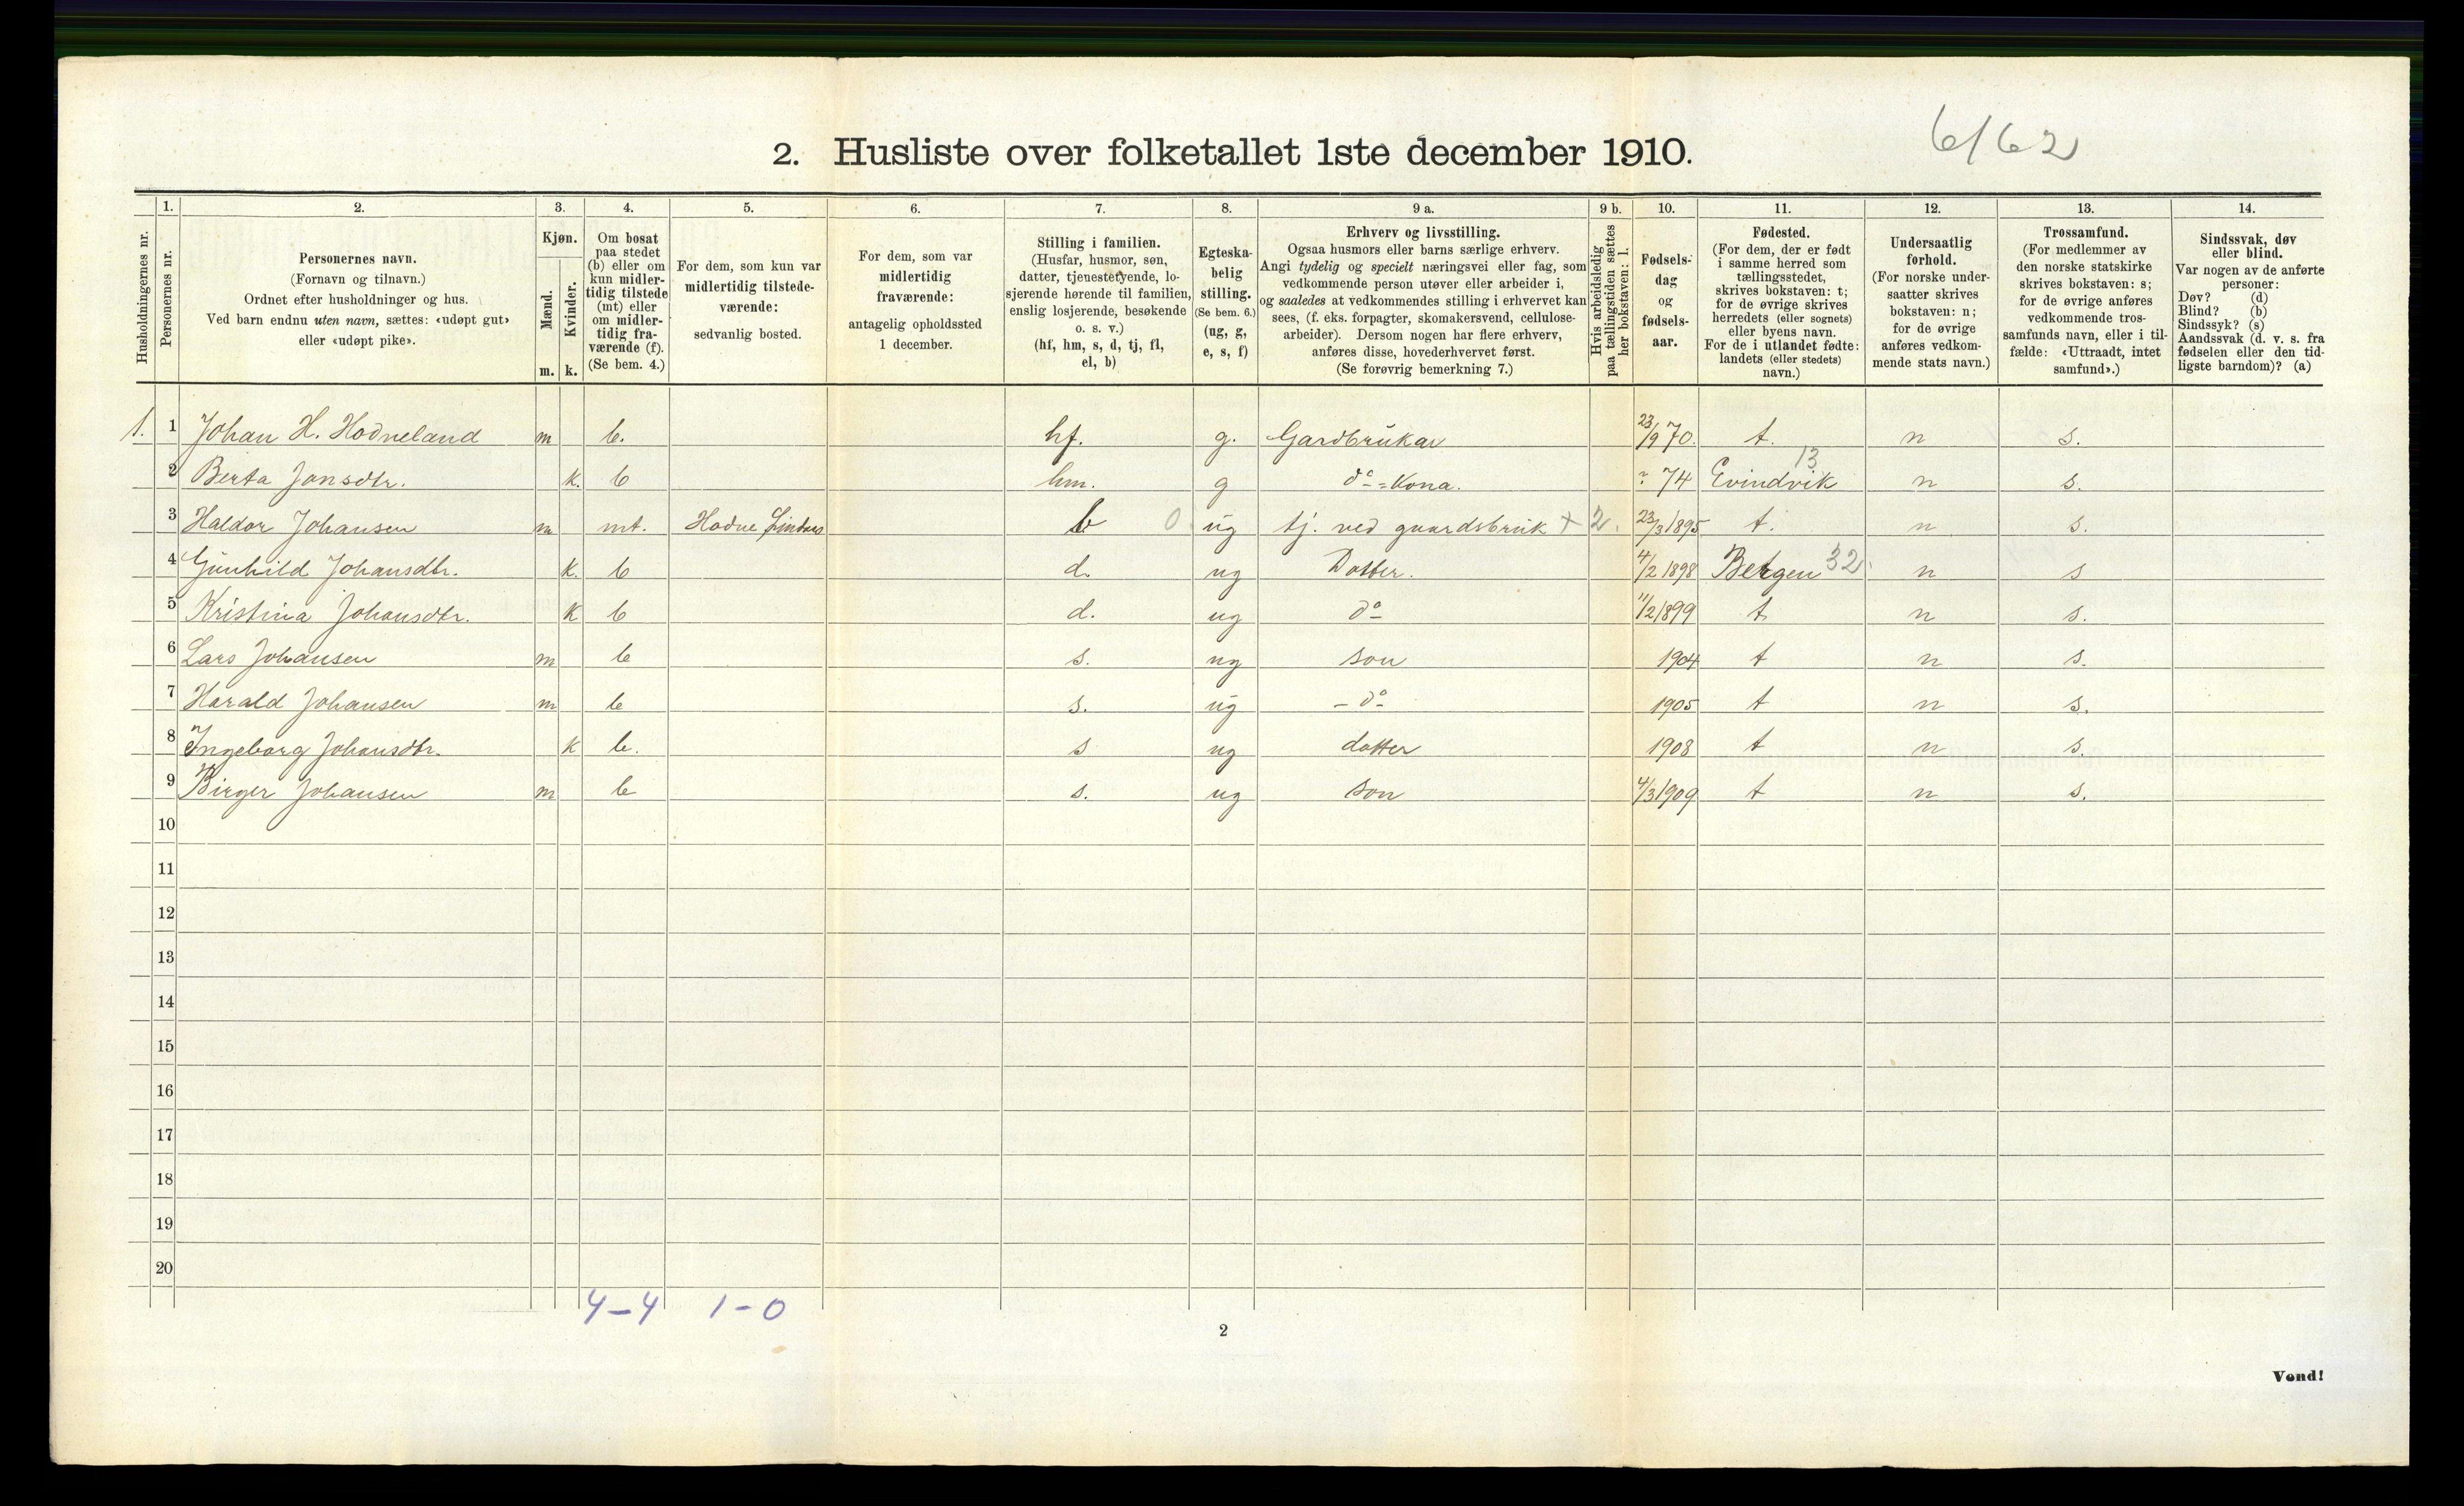 6/62
2. Husliste over folketallet 1ste december 1910.
Husholdningernes nr.
1.
Personernes nr.
2.
Personernes navn.
(Fornavn og tilnavn.)
Ordnet efter husholdninger og hus.
Ved barn endnu uten navn, sættes: «udøpt gut»
eller «udøpt pike».
3.
Kjøn.
Mænd.
Kvinder.
m. k.
4.
Om bosat
paa stedet
(b) eller om
kun midler-
tidig tilstede
(mt) eller
om midler-
tidig fra-
værende (f).
(Se bem. 4.)
5.
For dem, som kun var
midlertidig tilstede-
værende:
sedvanlig bosted.
6.
For dem, som var
midlertidig
fraværende:
antagelig opholdssted
1 december.
7.
Stilling i familien.
(Husfar, husmor, søn,
datter, tjenestetyende, lo-
sjerende hørende til familien,
enslig losjerende, besøkende
o. s. v.)
(hf, hm, s, d, tj, fl,
el, b)
8.
Egteska-
belig
stilling.
(Se bem. 6.)
(ug, g,
e, s, f)
9 a.
Erhverv og livsstilling.
Ogsaa husmors eller barns særlige erhverv.
Angi tydelig og specielt næringsvei eller fag, som
vedkommende person utøver eller arbeider i,
og saaledes at vedkommendes stilling i erhvervet kan
sees, (f. eks. forpagter, skomakersvend, cellulose-
arbeider). Dersom nogen har flere erhverv,
anføres disse, hovederhvervet først.
(Se forøvrig bemerkning 7.)
9 b.
Hvis arbeidsledig
paa tællingstiden sættes
her bokstaven: l.
10.
Fødsels-
dag
og
fødsels-
aar.
11.
Fødested.
(For dem, der er født
i samme herred som
tællingsstedet,
skrives bokstaven: t;
for de øvrige skrives
herredets (eller sognets)
eller byens navn.
For de i utlandet fødte:
landets (eller stedets)
navn.)
12.
Undersaatlig
forhold.
(For norske under-
saatter skrives
bokstaven: n;
for de øvrige
anføres vedkom-
mende stats navn.)
13.
Trossamfund.
(For medlemmer av
den norske statskirke
skrives bokstaven: s;
for de øvrige anføres
vedkommende tros-
samfunds navn, eller i til-
fælde: «Uttraadt, intet
samfund».)
14.
Sindssvak, døv
eller blind.
Var nogen av de anførte
personer:
Døv? (d)
Blind? (b)
Sindssyk? (s)
Aandssvak (d. v. s. fra
fødselen eller den tid-
ligste barndom)? (a)
1. 1 Johan H. Hodneland m b. hf. g. Gardbrukar 23/9 70. t. n s.
2 Berta Jonsdtr. k. b hm. g do = Kona. ? 74 Evindvik 13 n s.
3 Haldor Johansen m mt. Hodne Lindaas b 0 ug tj. ved guardsbruk + 2. 23/3 1895 t. n s.
4 Gunhild Johansdtr. k. b d. ug Dotter. 4/2 1898 Bergen 32. n s
5 Kristina Johansdtr. k b d. ug do 11/2 1899 t. n s.
6 Lars Johansen m b s. ug son 1904 t n s.
7 Harald Johansen m b s. ug - do - 1905 t n s.
8 Ingeborg Johansdtr. k b. s ug dotter 1908 t n s.
9 Birger Johansen m b s. ug son 4/3 1909 t n s.
10
11
12
13
14
15
16
17
18
19
20
4-4 1-0
2
Vend!